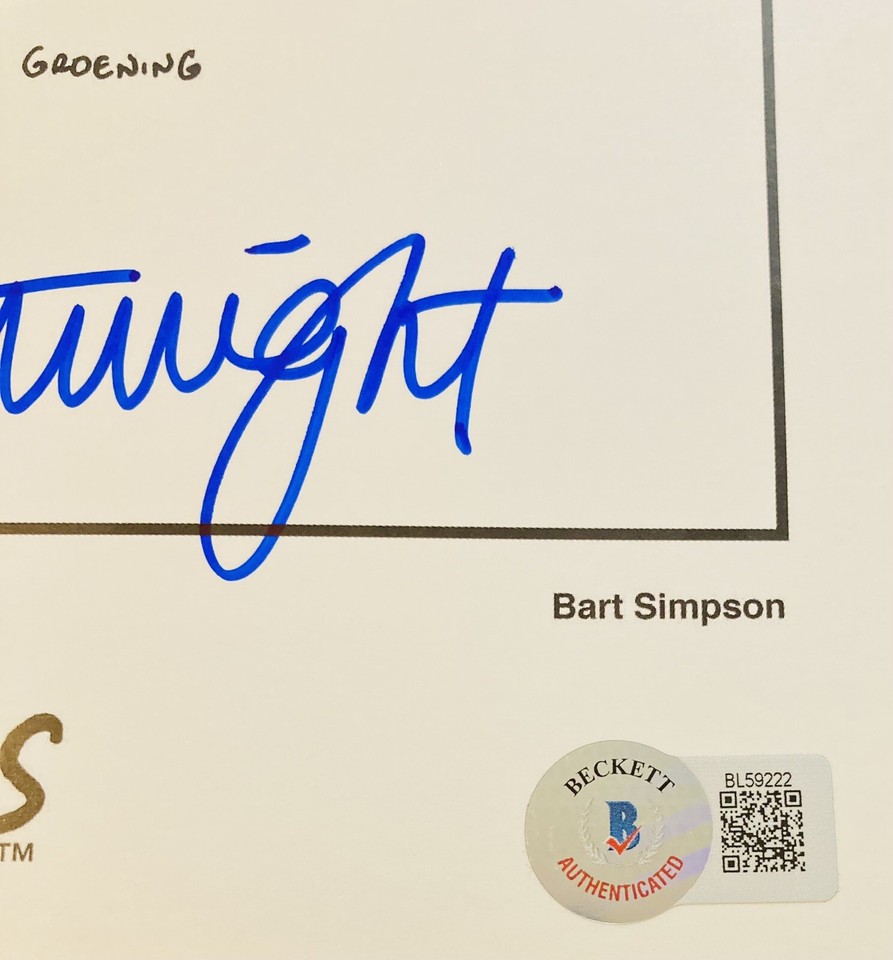 GROENING
twright
Bart Simpson
S
TM
BECKETT
B
AUTHENTICATED
BL59222